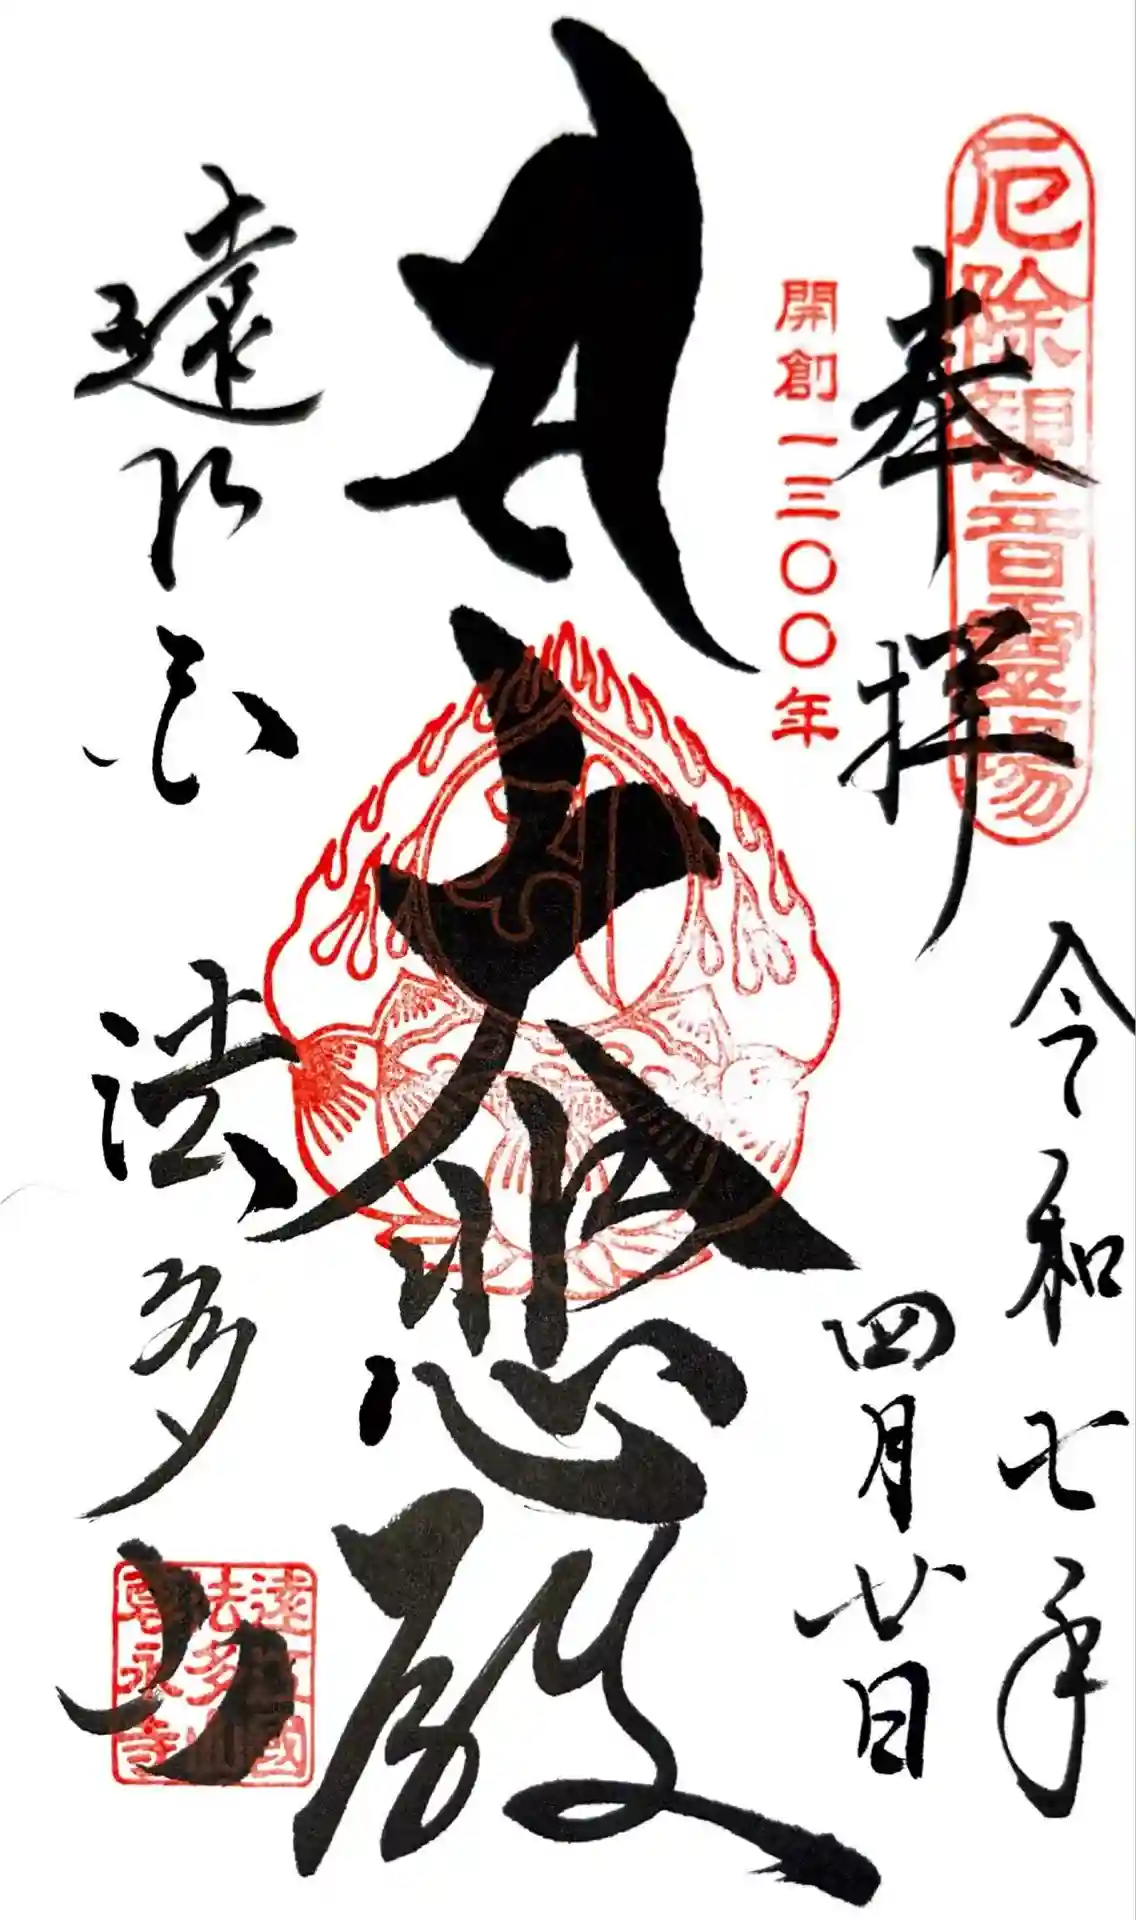 厄除観音霊場
奉拝
令和七年
四月廿日
開創一三〇〇年
大悲殿
遠江国
法多山
遠江國
法多山
尊永寺